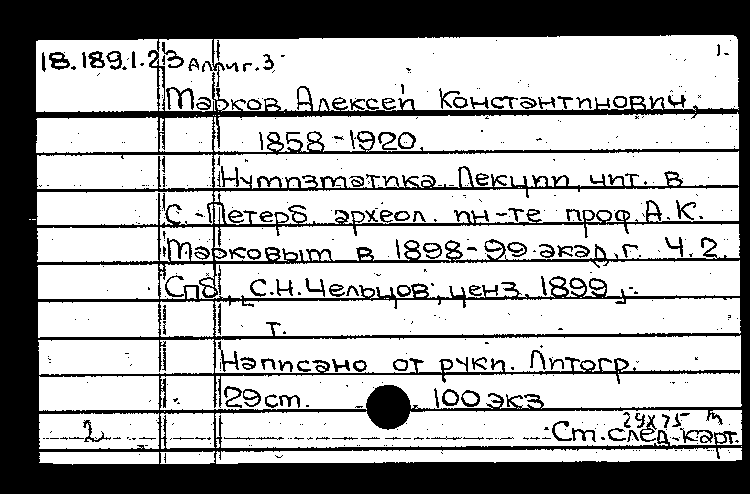 18.189.1.23 Аллиг.3 1.
Марков, Алексей Константинович,
1858-1920.
Нумизматика. Лекции, чит. в
С.-Петерб. археол. ин-те проф. А.К.
Марковым в 1898-99 акад. г. Ч.2.
Спб., [С.Н. Чельцов, ценз. 1899].
т.
Написано от руки. Литогр.
29 ст. 100 экз
29х75
2 Ст. след. карт.